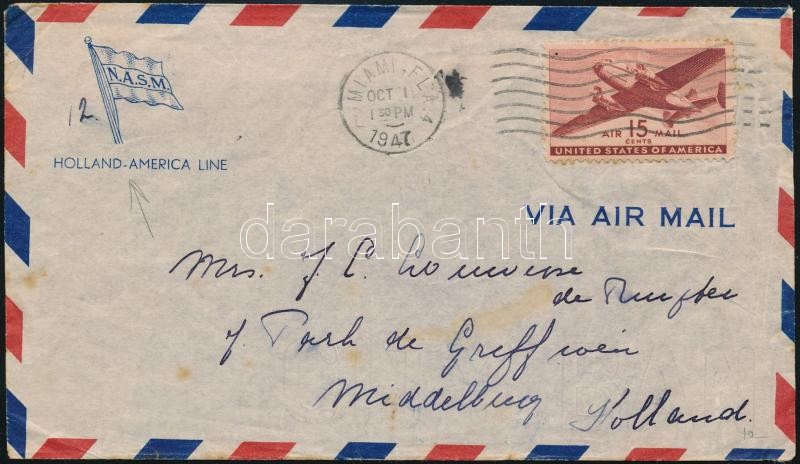 N.A.S.M.
12.
HOLLAND-AMERICA LINE
MIAMI, FLA. 4
OCT 1
1 30 PM
1947
AIR 15 MAIL
CENTS
UNITED STATES OF AMERICA
VIA AIR MAIL
darabanth
Mrs. J. C.
de Ruyter
7. Park de Griffioen
Middelburg Holland.